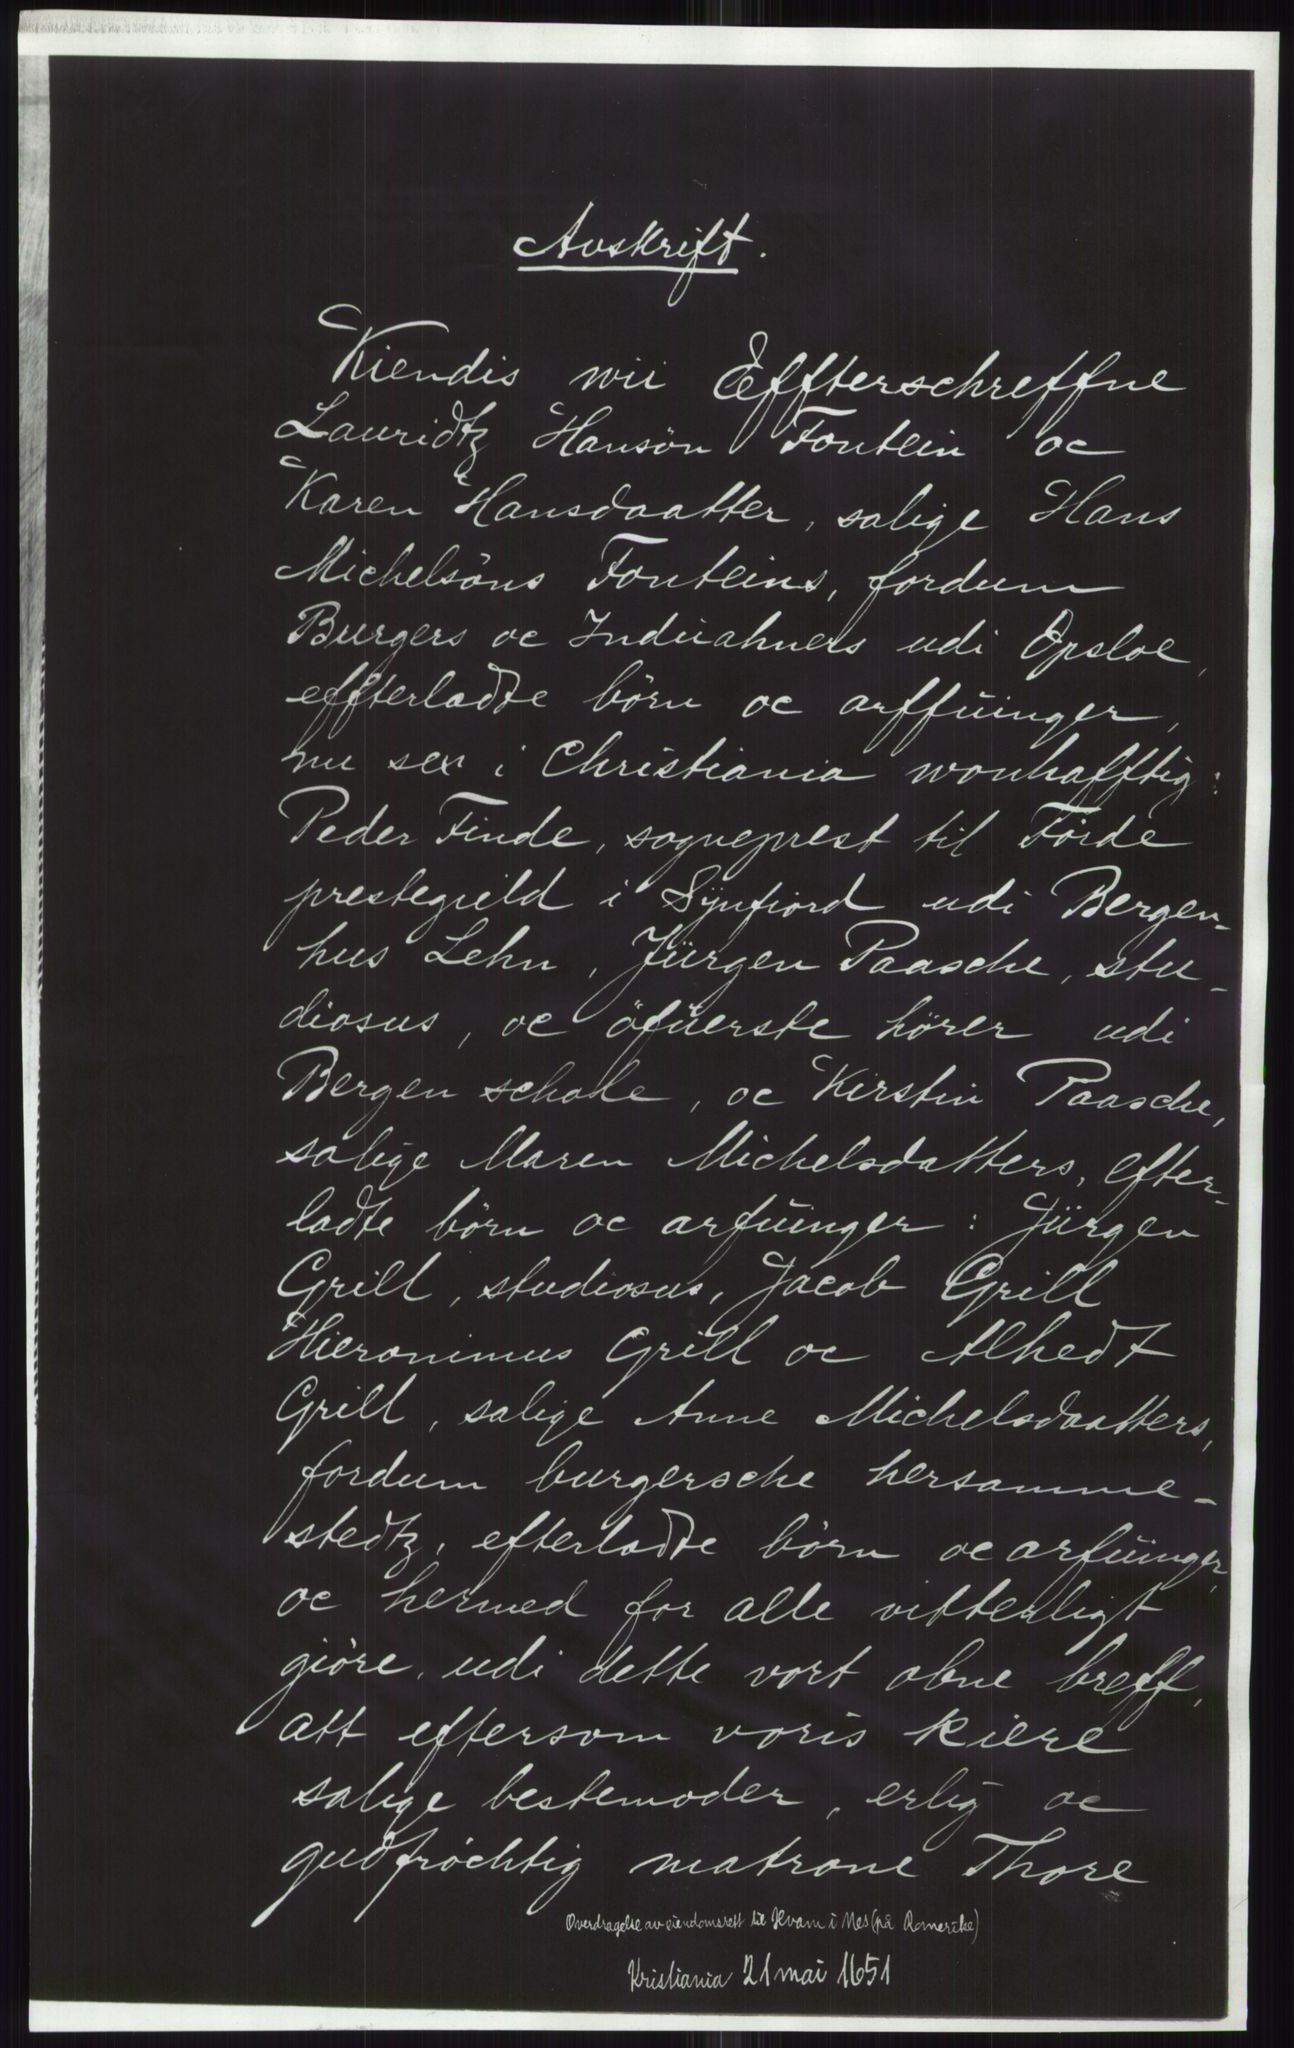 Avskrift.
Kiendis wii Effterschreffne
Lauridtz Hansön Fontein oc
Karen Hansdaatter, salige Hans
Michelsöns Fonteins, fordum
Burgers oc Induahners udi Opsloe,
effterladte börn oc arffuinger,
nu sex i Christiania wonhafftig:
Peder Finde, sogneprest til Förde
prestegield i Synfiord udi Bergen-
hus Lehn, Jürgen Paasche, stu-
diosus, oc öfuerste hörer udi
Bergen schole, oc Kirstin Paasche,
salige Maren Michelsdatters, efter-
ladte börn oc arfuinger: Jürgen
Grill, studiosus, Jacob Grill
Hieronimus Grill oc Alhedt
Grill, salige Anne Michelsdaatters,
fordum burgersche hersamme-
stedtz, efterladte börn oc arfuinger,
oc hermed for alle vitterligt
giöre, udi dette vort obne breff,
att eftersom voris kiere
salige bestemoder, erlig oc
gudfröchtig matrone Thore
Overdragelse av eiendomsrett til Kvam i Nes (på Romerike)
Kristiania 21 mai 1651